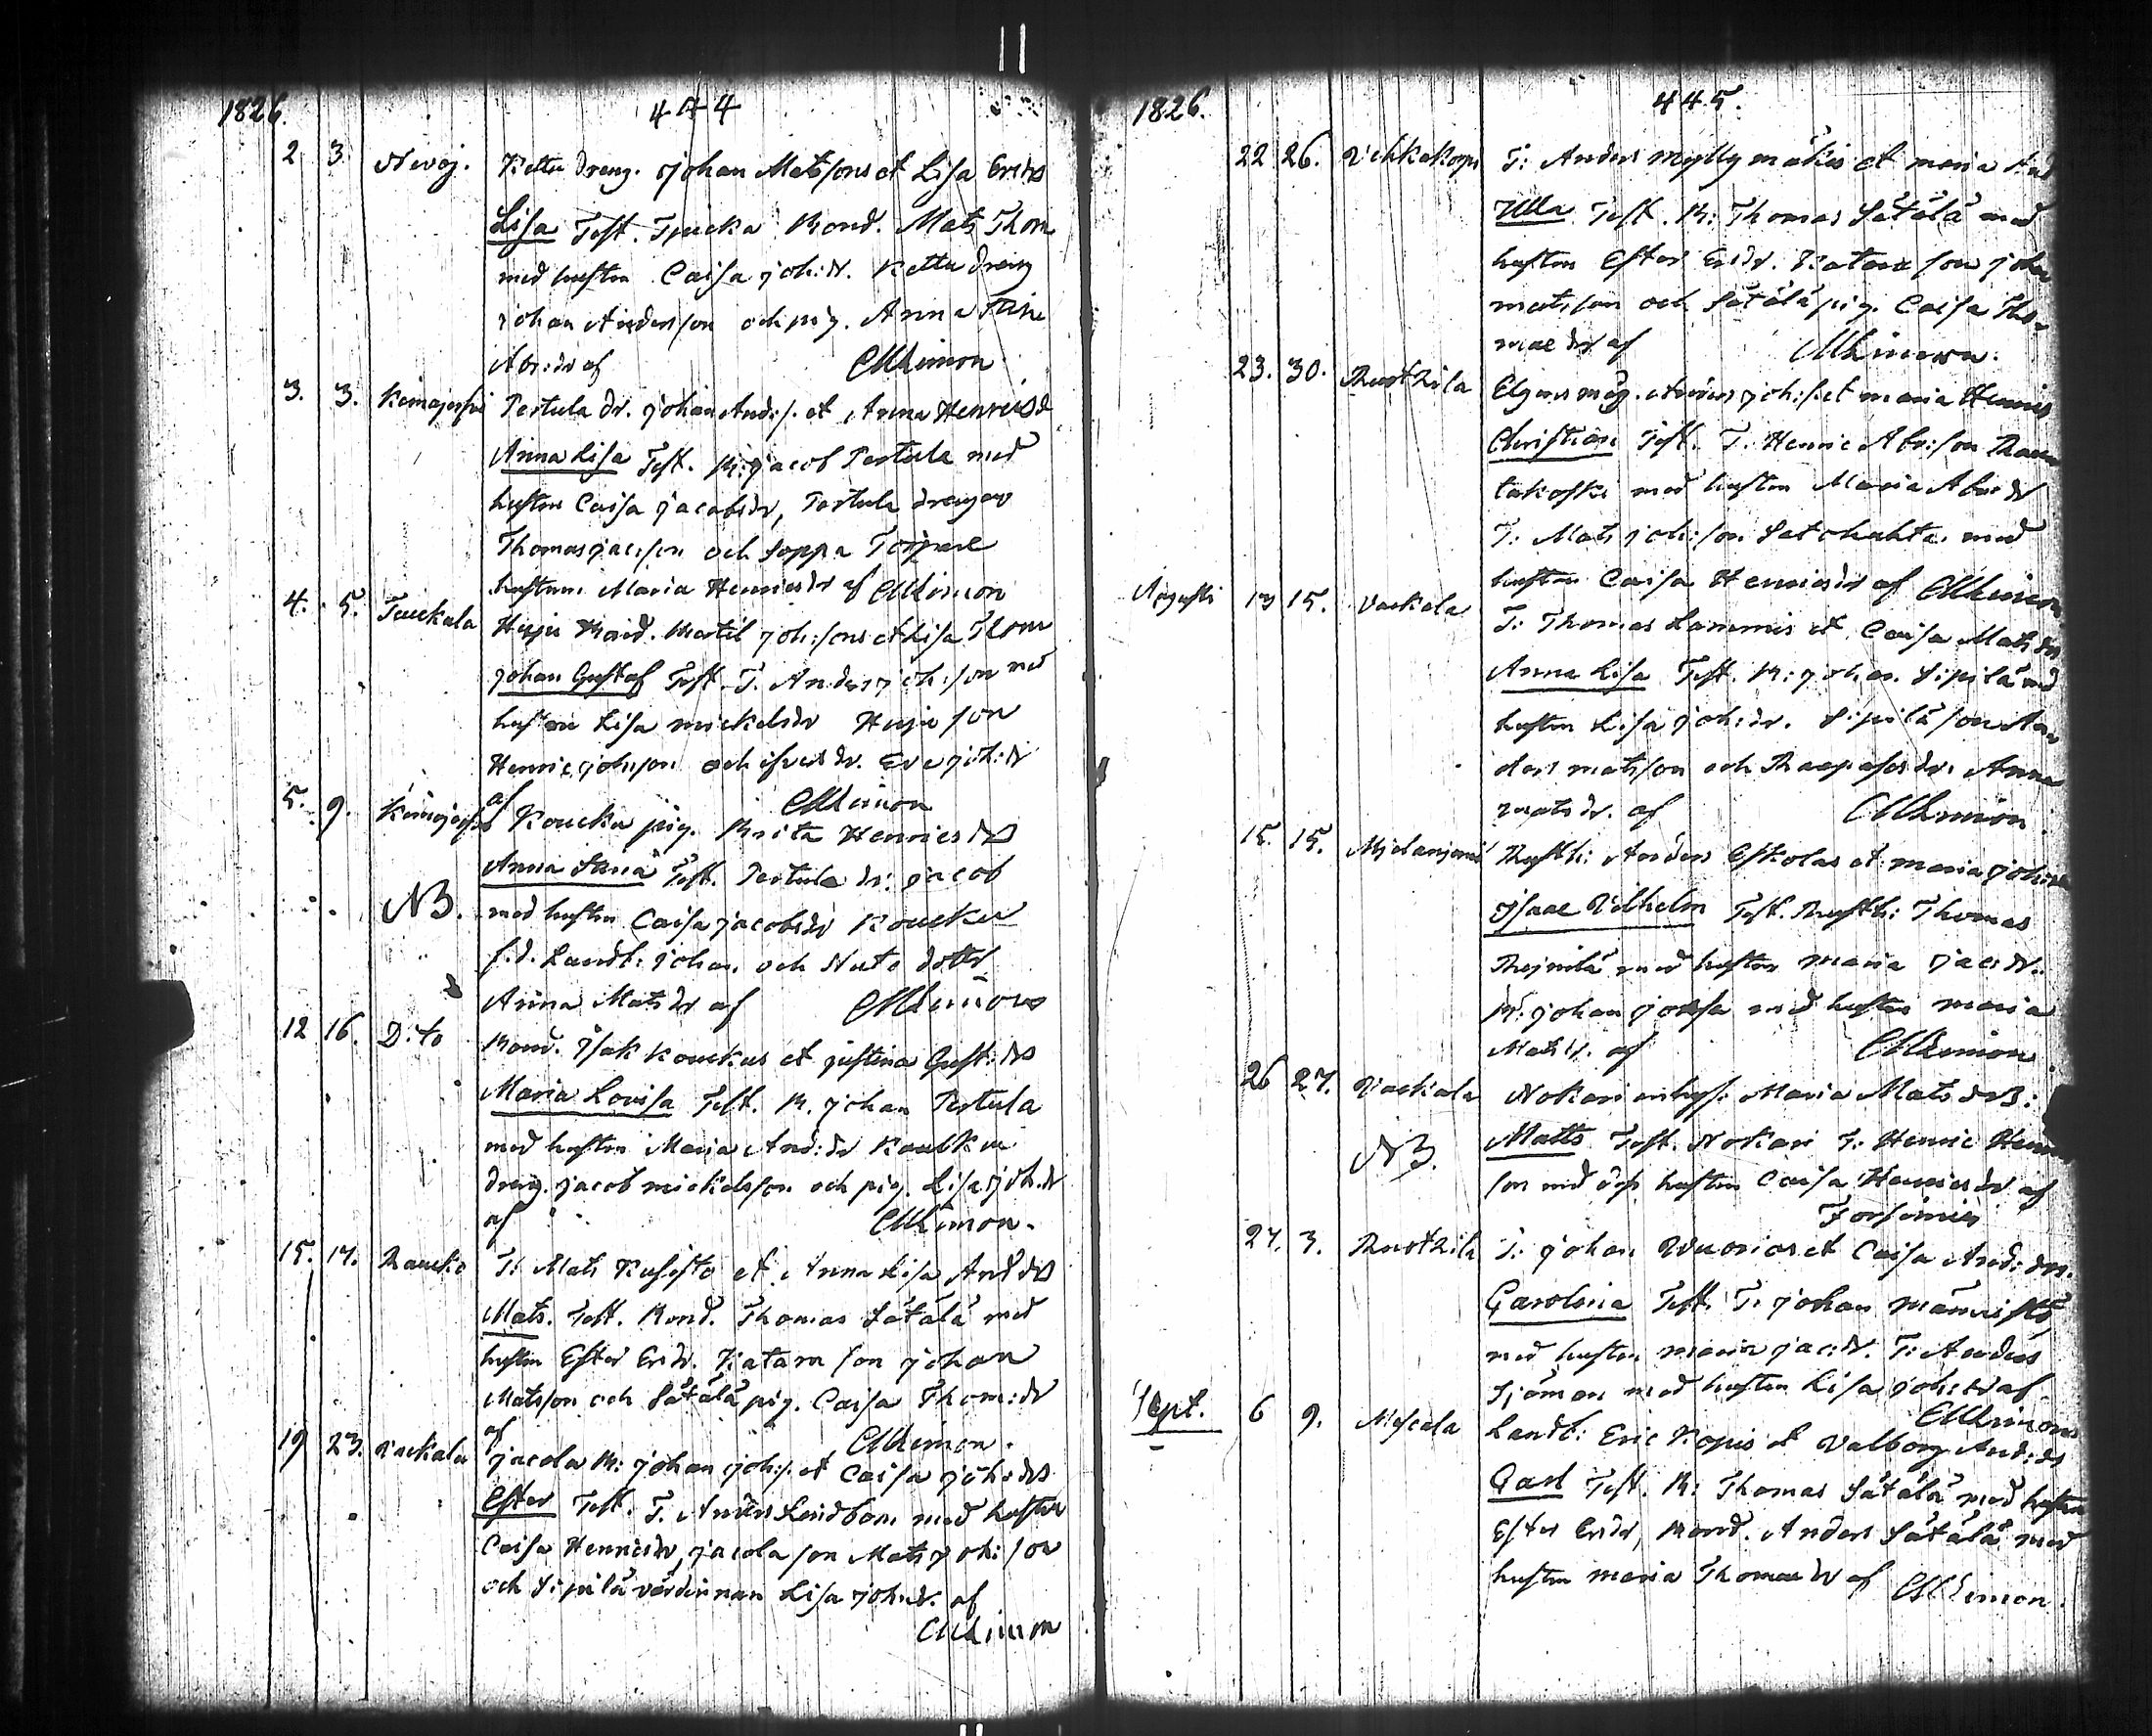 1826. 444
2 3 Nevoj. Kettu dreng. Johan Matssons et Lisa Ericsd
Lisa Test. Bond. Mats Thom
med hustru Caisa Joh:dr. Kettu dreng
Johan Andersson och pig. Anna Stina
Abr:dr af CMLimon
3. 3. Pertula dr. Johan Ands. et Anna Henricsd
Anna Lisa Test. B: Jacob Pertula med
hustru Caisa Jacobsdr, Pertula drengen
Thomas Jacsson och Soppa Torpare
hustrun Maria Henricsdr af CMLimon
4. 5. Tuckala Huju Bond. Mertil Joh:sons et Lisa Thom
Johan Gustaf Test. T. Anders Joh:son med
hustru Lisa Mickelsdr Huju son
Henric Johsson och dr. Eva Joh:dr
af CMLimon
5. 9. Koucku pig. Brita Henricsdr
Anna Test. Pertula dr: Jacob
NB. med hustru Caisa Jacobsdr Koucku
f.d. Landb: Johan och Nuto dottr
Anna Matsdr af CMLimon
12 16. D:to Bond. Isak Kouckus et Justina Gust:dr
Maria Lovisa Test. B. Johan Pertula
med hustru Maria And:dr
dreng. Jacob Mickelsson och pig. Lisa Joh:dr
af CMLimon.
15. 17. Raucko T: Mats Kusisto et Anna Lisa And:dr
Mats. Test. Bond. Thomas Sätälä med
hustru Ester Ersdr. Katara son Johan
Matsson och Sätälä pig. Caisa Thom:dr
af CMLimon.
19 23. Vackala Jacola B: Johan Joh:s. et Caisa Joh:dr
Ester Test. T. Anders Lindbom med hustru
Caisa Henricsdr, Jacola son Mats Joh:son
och Sipilä värdinnan Lisa Joh:dr. af
CMLimon
1826. 445.
22 26. T: Anders Myllymäkis et Maria And
Ulla Test. B: Thomas Sätälä med
hustru Ester Ersdr. Katara son Johan
Matsson och Sätälä pig. Caisa Tho-
mae dr af CMLimon.
23. 30. Rustkila måg. Anders Joh:s. et Maria Henrics
Christian Test. T. Henric Abr:son
med hustru Maria Abr:dr
T: Mats Joh:son med
hustru Caisa Henricsdr af CMLimon
Augusti 13 15. Vackala T: Thomas Lammis et Caisa Matsdr
Anna Lisa Test. B: Johan Sipilä med
hustru Lisa Joh:dr. Sipilä son An
ders Matsson och dr: Anna
Matsdr. af CMLimon
15. 15. Rusth: Anders Eskolas et Maria Joh:dr
Isaac Vilhelm Test. Rusth: Thomas
med hustru Maria Jac:dr.
B: Johan med hustru Maria
Matsdr. af CMLimon
26 27. Vackala Nokari inhys: Maria Matsdr:
NB. Matts Test. Nokari T: Henric Hen
son med dess hustru Caisa Henricsdr af
27. 3. Rustkila T: Johan Vuorios et Caisa And:dr.
Carolina Test. T: Johan Männistö
med hustru Maria Jac:dr. T: Anders
Sjöman med hustru Lisa Joh:dr af
CMLimon
Sept. 6 9. Myscala Landb: Eric Kopis et Valborg And:dr
Carl Test. B: Thomas Sätälä med hustru
Ester Ersdr, Bond. Anders Sätälä med
hustru Maria Thomaedr af CMLimon.